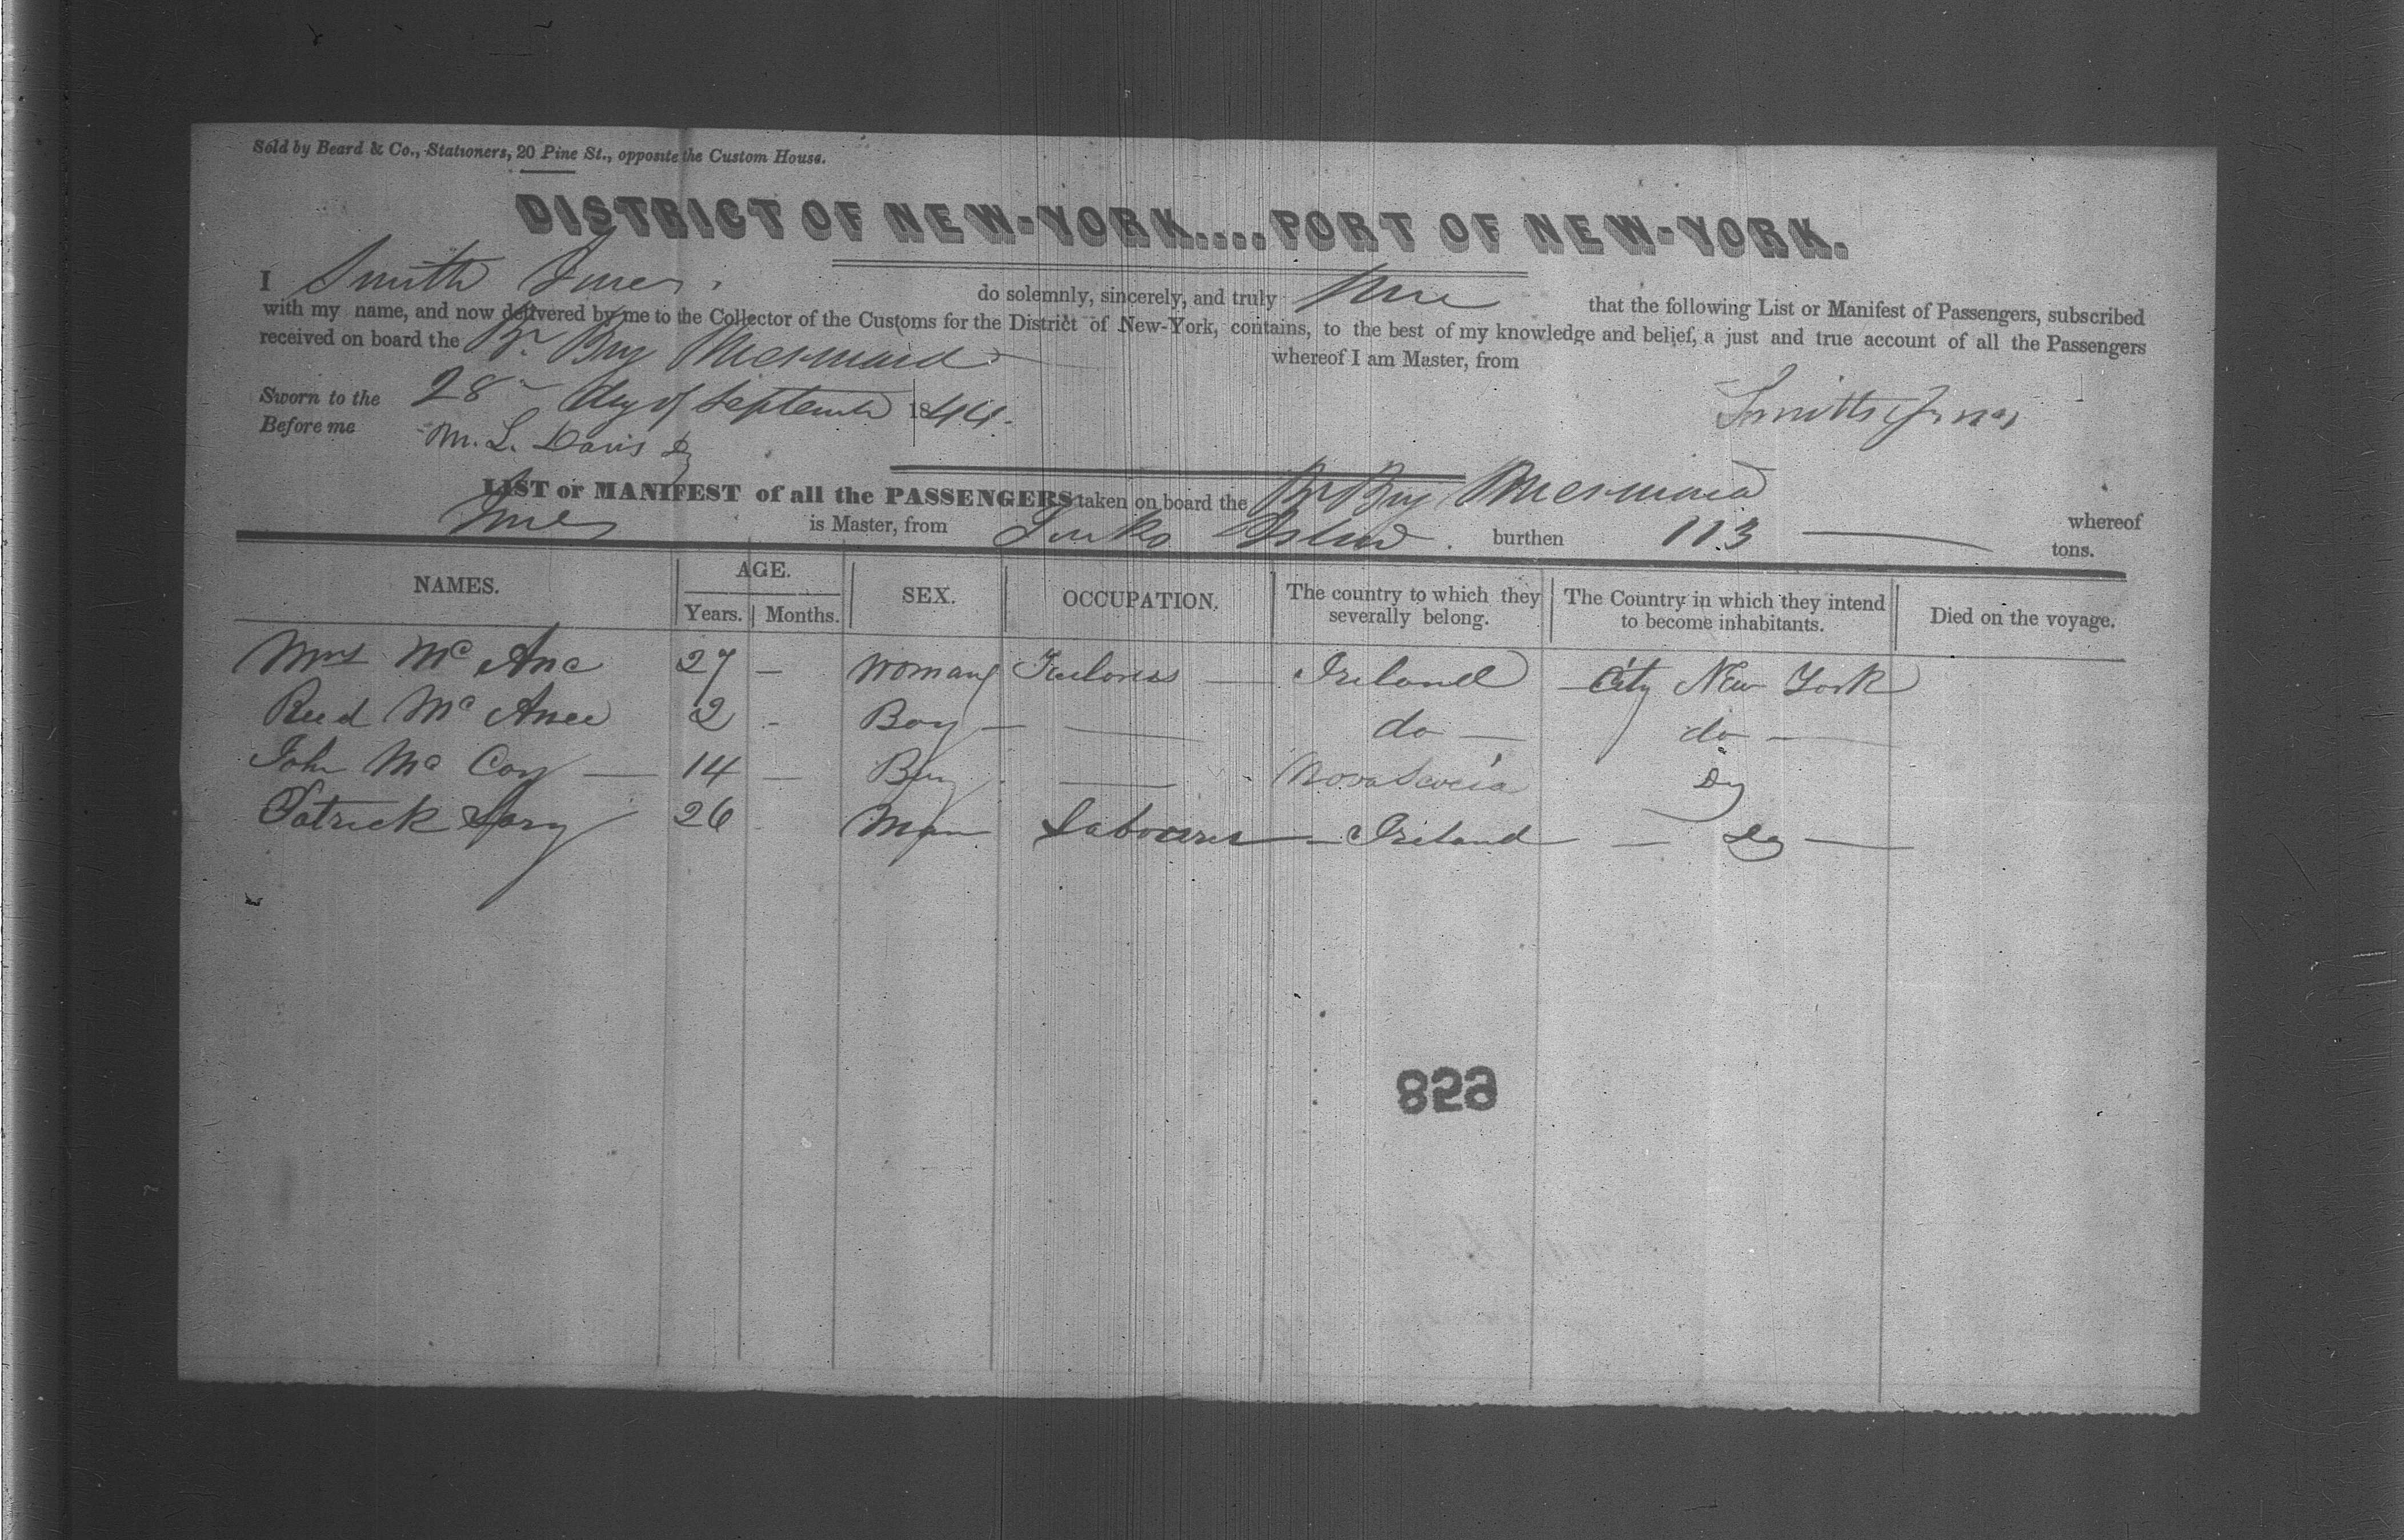 Sold by Beard & Co., Stationers, 20 Pine St., opposite the Custom House.
DISTRICT OF NEW-YORK....PORT OF NEW-YORK.
I Smith do solemnly, sincerely, and truly that the following List or Manifest of Passengers, subscribed
with my name, and now delivered by me to the Collector of the Customs for the District of New-York, contains, to the best of my knowledge and belief, a just and true account of all the Passengers
received on board the Br Brig Mermaid whereof I am Master, from
Sworn to the 28 day of September 1844.
Before me M. L. Davis
Smith
LIST or MANIFEST of all the PASSENGERS taken on board the Br Brig Mermaid whereof
is Master, from Turks Island. burthen 113 tons.
NAMES. AGE. SEX. OCCUPATION. The country to which they severally belong. The Country in which they intend to become inhabitants. Died on the voyage.
Years. Months.
Mrs Mc Ane 27 - Woman Ireland City New York
Reed Mc Anee 2 - Boy - do - do -
John Mc Coy - 14 - Boy Nova Scocia Do
Patrick 26 Man Labourer - Ireland - Do -
859